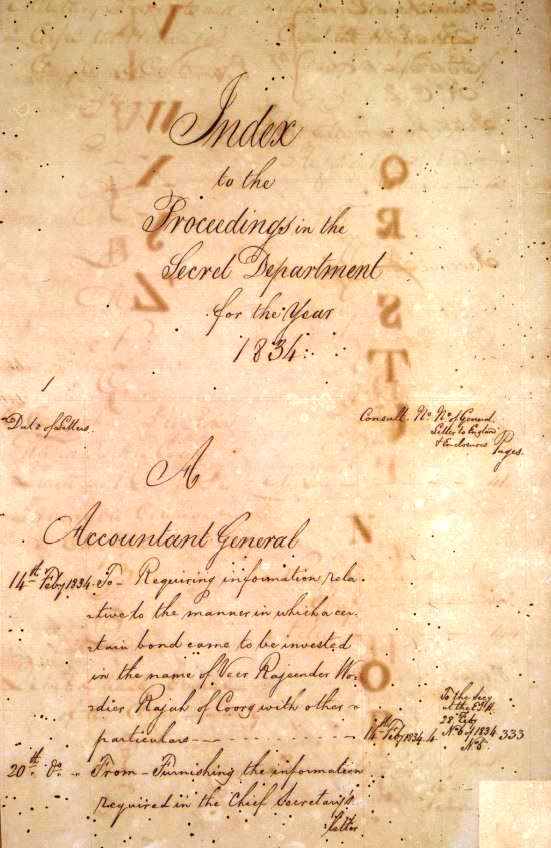 Index
to the
Proceedings in the
Secret Department
for the Year
1834:
1
Date of Letters.
Consult. No. No. of General
Letter to England
& Enclosures
Pages.
A
Accountant General
14th Feby 1834. To - Requiring information rela-
-tive to the manner in which a cer-
-tain bond came to be invested
in the name of Veer Rajeender Wo-
-dier Rajah of Coorg with other
particulars
14th Feby 1834. 4.
To the Secy
at the E.I.H.
28 Feby
No. 6 of 1834
No. 5
333
20th. do. " From - Furnishing the information
required in the Chief Secretary's
letter